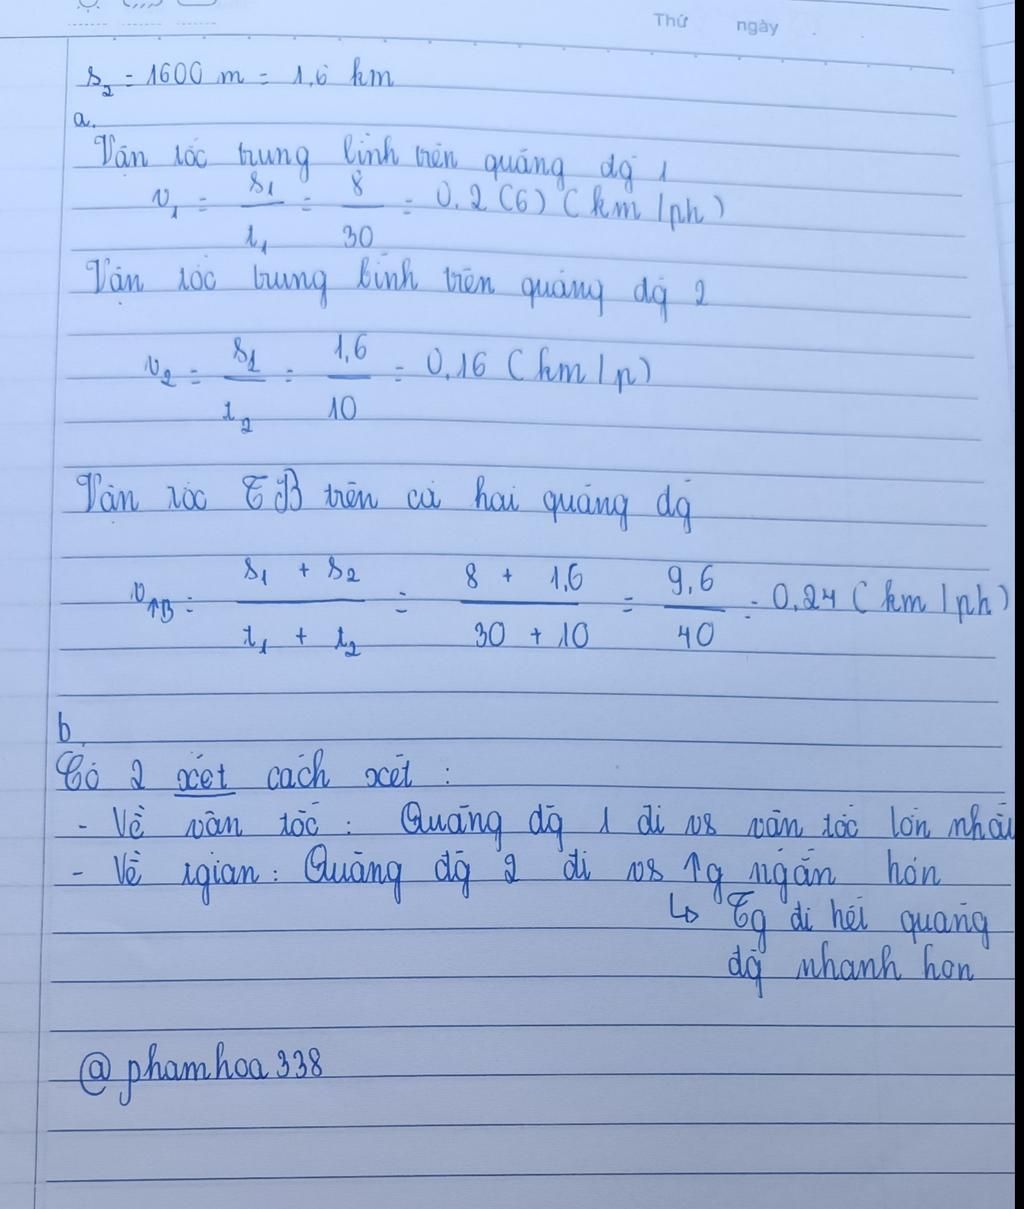 Thứ ngày
s₂ = 1600 m = 1,6 km
a.
Vận tốc trung bình trên quãng đg 1
v₁ = s₁ / t₁ = 8 / 30 = 0,2(6) (km/ph)
Vận tốc trung bình trên quãng đg 2
v₂ = s₂ / t₂ = 1,6 / 10 = 0,16 (km/p)
Vận tốc TB trên cả hai quãng đg
v_TB = s₁ + s₂ / t₁ + t₂ = 8 + 1,6 / 30 + 10 = 9,6 / 40 = 0,24 (km/ph)
b
Có 2 xét cách xét :
- Về vận tốc : Quãng đg 1 đi vs vận tốc lớn
- Về tgian : Quãng đg 2 đi vs tg ngắn hơn
↳ Tg đi hết quãng
đg nhanh hơn
@phamhoa338